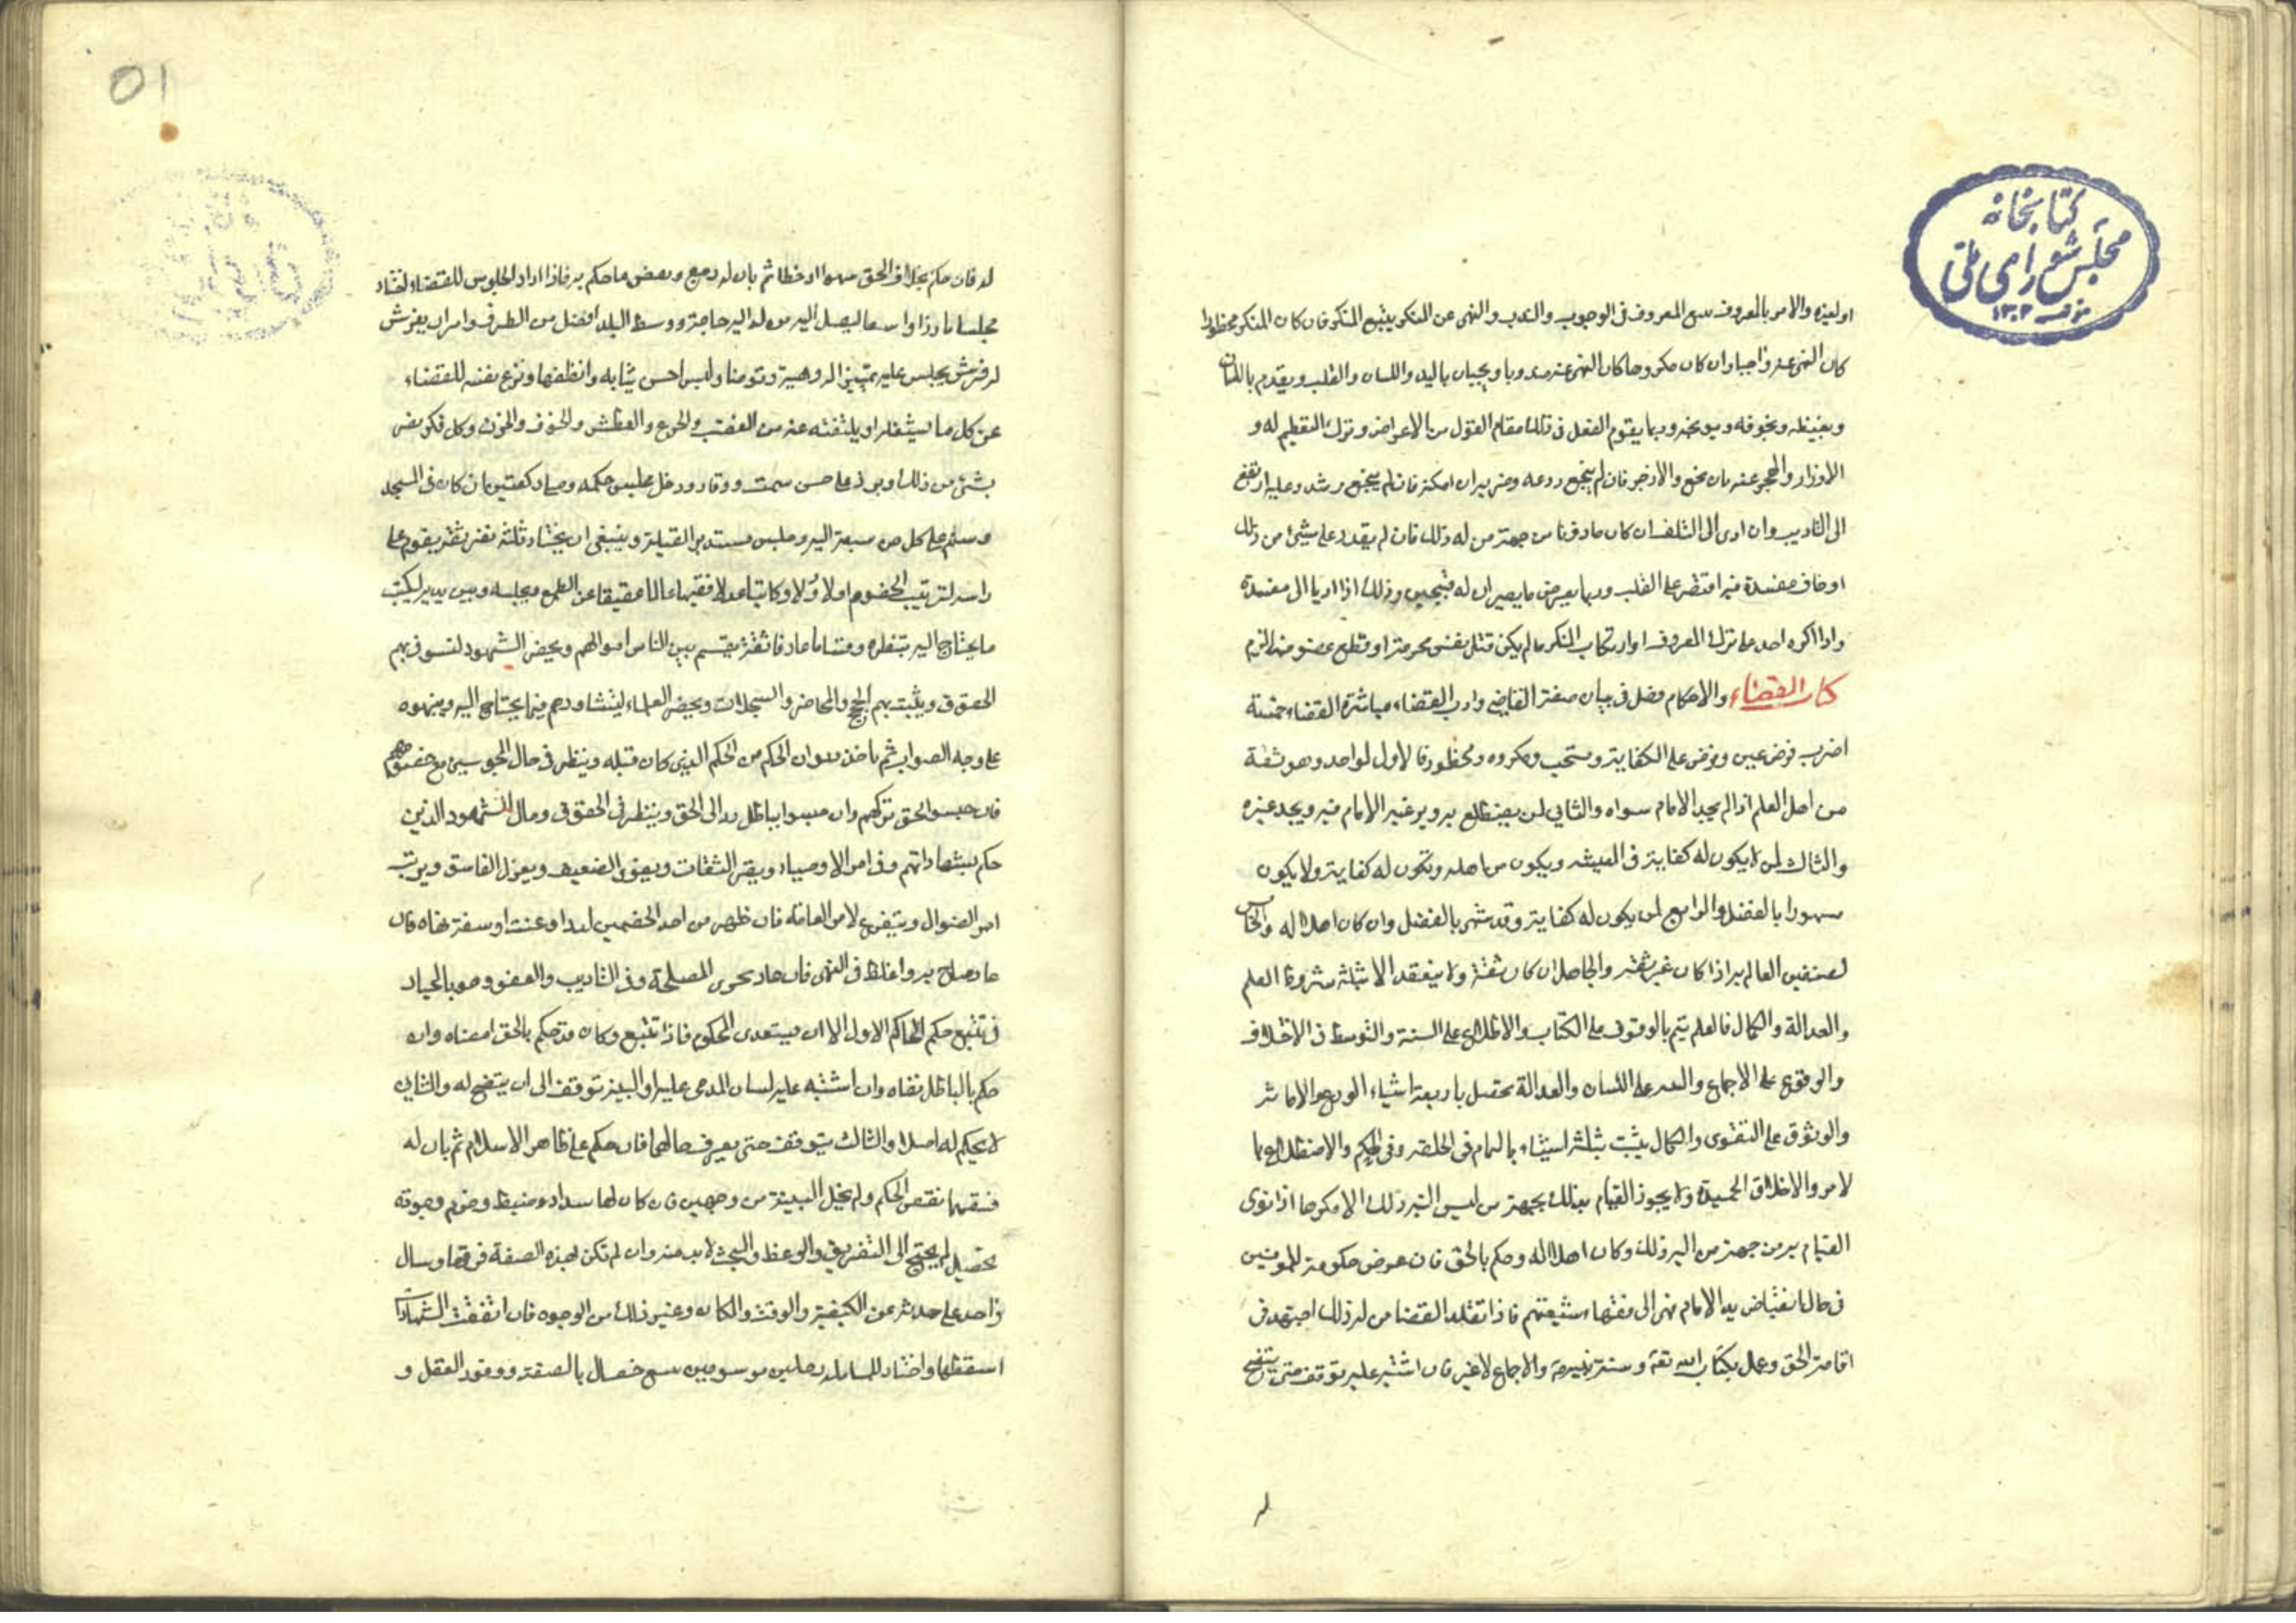 كتابخانه
مجلس شورای ملی
او لغيره والامر بالمعروف يتبع المعروف فى الوجوب والندب والنهى عن المنكر يتبع المنكر فان كان المنكر محظورا
كان النهى عنه واجبا وان كان مكروها كان النهى عنه مندوبا ويجبان باليد واللسان والقلب ويقدم باللسان
ويغيظه ويخوفه ويوبخه وربما يقوم الفعل فى ذلك مقام القول من الاعراض وترك التعظيم له و
الازورار والهجر عنه فان نجع والا زجر فان لم ينجع ردعه وضربه ان امكنه فان لم ينجع
الى التاديب وان ادى الى التلف ان كان ماذونا من جهة من له ذلك فان لم يقدر على شيئ من ذلك
او خاف مفسدة فيه اقتصر على القلب وربما يعرض ما يصيران له قبيحين وذلك اذا اديا الى مفسدة
واذا اكره احد على ترك المعروف او ارتكاب المنكر ما لم يكن قتل نفس محرمة او قطع عضو منه لزم
كتاب القضاء والاحكام فصل فى بيان صفة القاضى وادب القضاء مباشرة القضاء خمسة
اضرب فرض عين وفرض على الكفاية ومستحب ومكروه ومحظور فالاول لواحد وهو ثقة
من اهل العلم اذا لم يجد الامام سواه والثانى لمن يضطلع به وبه غير الامام فيه ويجد غيره
والثالث لمن لا يكون له كفاية فى المعيشه ويكون من اهله وتكون له كفاية ولا يكون
مشهورا بالفضل والرابع لمن يكون له كفاية وقد شهر بالفضل وان كان اهلا له والخامس
لصنفين العالم به اذا كان غير ثقة والجاهل ان كان ثقة ولا ينعقد الا بثلثة شروط العلم
والعدالة والكمال فالعلم يتم بالوقوف على الكتاب والاطلاع على السنة والتوسط فى الاختلاف
والوقوع على الاجماع والتنبه على اللسان والعدالة تحصل باربعة اشياء الورع والامانة
والوثوق على التقوى والكمال يثبت بثلثة اشياء بالتمام فى الخلقه وفى الحكم والاضطلاع با
لامر والاخلاق الحميدة ولا يجوز القيام بذلك بجهة من ليس اليه ذلك الا مكرها اذا نوى
القيام به من جهة من اليه ذلك وكان اهلا له وحكم بالحق فان عرض حكومة للمومنين
فى حال انقباض يد الامام فهى الى فقهاء شيعتهم فاذا تقلد القضا من له ذلك اجتهد فى
اقامة الحق وعمل بكتاب الله تعه وسنة نبيه ص والاجماع لا غير فان اشتبه عليه توقف حتى يتضح
له فان حكم بخلاف الحق سهوا او خطا ثم بان له رجع ونقض ما حكم به فاذا اراد الجلوس للقضاء اختار
مجلسا بارزا واسعا ليصل اليه من له اليه حاجة ووسط البلد افضل من الطرف وامر ان يفرش
له فرش يجلس عليه تمييزا له وهيبة ولبس احسن ثيابه وانظفها وفرغ نفسه للقضاء
عن كل ما يشغله او يلفته عنه من الغضب والجوع والعطش والخوف والحزن وكل فكر
بشئ من ذلك وبرز على حسن سمت ووقار ودخل مجلس حكمه وصلى ركعتين ان كان فى المسجد
وسلم على كل من سبقه اليه وجلس مستدبر القبلة وينبغى ان يختار ثلثة نفر ثقة يقوم على
راسه لترتيب الخصوم اولا اولا وكاتبا عدلا فقيها عالما عفيفا عن الطمع ويجلسه بين يديه ليكتب
ما يحتاج اليه بنظره وقساما عارفا ثقة يقسم بين الناس اموالهم ويحضر الشهود لتستوفى بهم
الحقوق ويثبت بهم الحجج والمحاضر والسجلات ويحضر العلماء ليشاورهم فيما يحتاج اليه وينبهوه
على وجه الصواب ثم ياخذ ديوان الحكم من الحاكم الذى كان قبله وينظر فى حال المحبوسين مع خصومهم
فان حبسوا بحق تركهم وان حبسوا بباطل رد الى الحق وينظر فى الحقوق وحال الشهود الذين
حكم بشهاداتهم وفى امر الاوصياء ويقر الثقات ويقوى الضعيف ويعزل الفاسق ويرتب
امر الضوال ويتفرغ لامر العامة فان ظهر من احد الخصمين لدد او عنت او سفه نهاه فان
عاد صاح به واغلظ فى النهى فان عاد تحرى المصلحة فى التاديب والعفو وهو بالخيار
فى تتبع حكم الحاكم الاول الا ان يستعدى المحكوم فاذا تتبع وكان قد حكم بالحق امضاه وان
حكم بالباطل نقضاه وان اشتبه عليه لسان المدعى عليه او البينة توقف الى ان يتضح له والثانى
لا يحكم له اصلا والثالث يتوقف حتى يعرف حالهما فان حكم على ظاهر الاسلام ثم بان له
فسقهما نقض الحكم ولم يخل البينة من وجهين فان كان لها سداد وضبط وحزم وجودة
تحصيل لم يحتج الى التفريق والوعظ والبحث لا بد منه وان لم تكن لهذه الصفة فرقها وسال
واحد على حدته عن الكيفية والوقت والمكان وغير ذلك من الوجوه فان اتفقت الشهادة